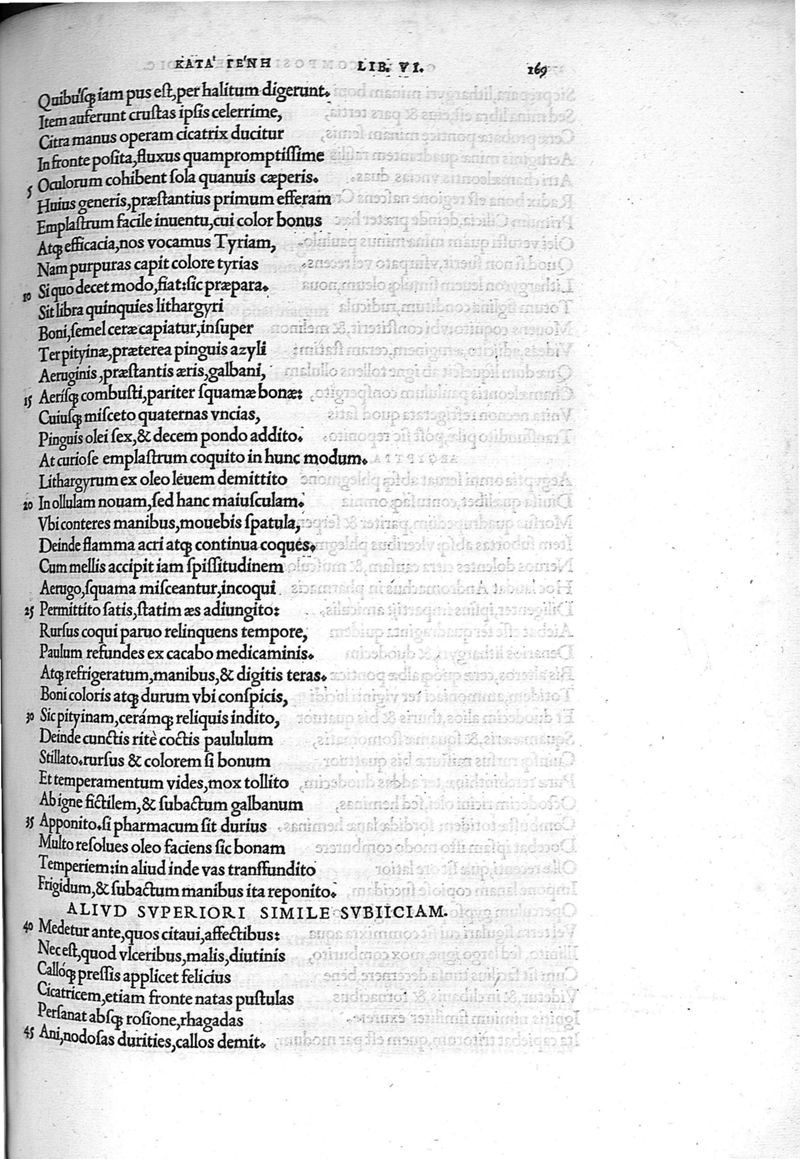 ΚΑΤΑ' ΓΕ'ΝΗ LIB. VI. 169
Quibusq; iam pus est, per halitum digerunt.
Item auferunt crustas ipsis celerrime,
Citra manus operam cicatrix ducitur
In fronte posita, fluxus quampromptissime
5 Oculorum cohibent sola quanuis cæperis.
Huius generis, præstantius primum efferam
Emplastrum facile inuentu, cui color bonus
Atq; efficacia, nos vocamus Tyriam,
Nam purpuras capit colore tyrias
10 Si quo decet modo, fiat: sic præpara.
Sit libra quinquies lithargyri
Boni, semel ceræ capiatur, insuper
Ter pityinæ, præterea pinguis azyli
Aeruginis, præstantis æris, galbani,
15 Aerisq; combusti, pariter squamæ bonæ:
Cuiusq; misceto quaternas vncias,
Pinguis olei sex, & decem pondo addito.
At curiose emplastrum coquito in hunc modum.
Lithargyrum ex oleo leuem demittito
20 In ollulam nouam, sed hanc maiusculam.
Vbi conteres manibus, mouebis spatula,
Deinde flamma acri atq; continua coques.
Cum mellis accipit iam spissitudinem
Aerugo, squama misceantur, incoqui
25 Permittito satis, statim æs adiungito:
Rursus coqui paruo relinquens tempore,
Paulum refundes ex cacabo medicaminis.
Atq; refrigeratum, manibus, & digitis teras.
Boni coloris atq; durum vbi conspicis,
30 Sic pityinam, cerámq; reliquis indito,
Deinde cunctis ritè coctis paululum
Stillato. rursus & colorem si bonum
Et temperamentum vides, mox tollito
Ab igne fictilem, & subactum galbanum
35 Apponito. si pharmacum sit durius
Multo resolues oleo faciens sic bonam
Temperiem: in aliud inde vas transfundito
Frigidum, & subactum manibus ita reponito.
ALIVD SVPERIORI SIMILE SVBIICIAM.
40 Medetur ante, quos citaui, affectibus:
Nec est, quod vlceribus, malis, diutinis
Callóq; pressis applicet felicius
Cicatricem, etiam fronte natas pustulas
Persanat absq; rosione, rhagadas
45 Ani, nodosas durities, callos demit.